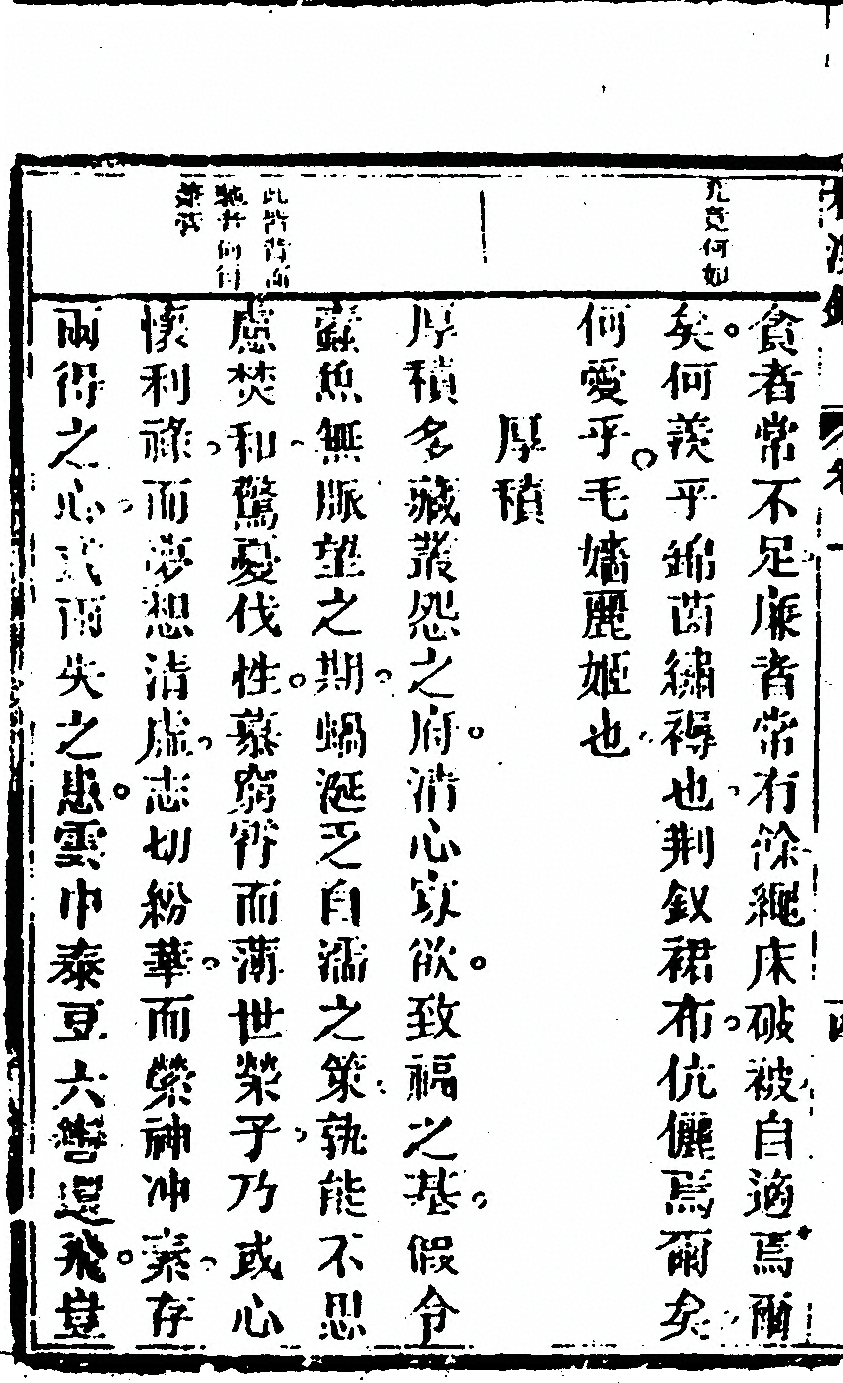 究竟何如
貪者常不足廉者常有餘繩床破被自適焉爾
矣何羨乎錦茵繡褥也荆釵裙布伉儷焉爾矣
何愛乎毛嬙麗姬也
厚積
厚積多藏叢怨之府清心寡欲致福之基假令
蠹魚無脈望之期蝸涎乏自濡之策孰能不思
此皆背而
馳者何得
兼營
慮焚和驚憂伐性慕窮窅而薄世榮子乃或心
懷利祿而夢想清虛志切紛華而榮神冲素存
兩得之心或兩失之患雲中泰豆六轡還飛豈